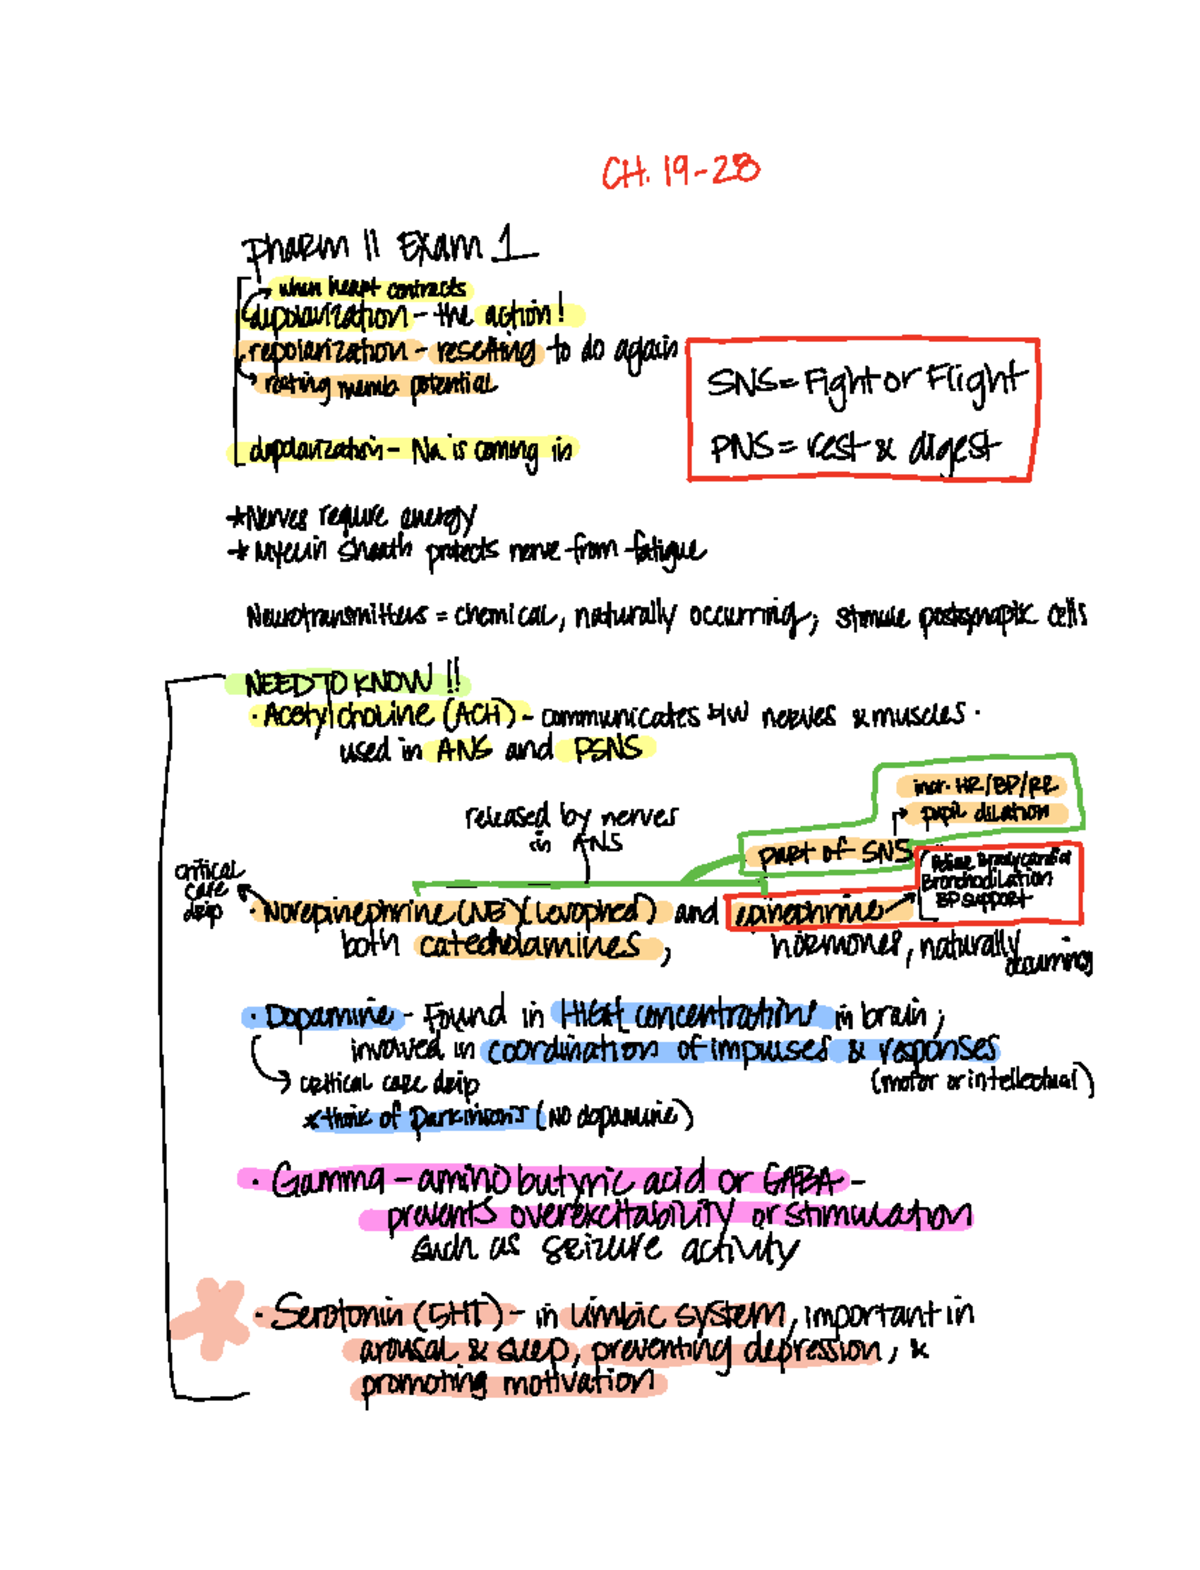 CH. 19-28
Pharm II Exam 1
when heart contracts
depolarization - the action!
repolarization - resetting to do again
resting memb. potential
SNS = Fight or Flight
PNS = rest & digest
depolarization - Na is coming in
*Nerves require energy
*Myelin sheath protects nerve from fatigue
Neurotransmitters = chemical, naturally occurring; stimule postsynaptic cells
NEED TO KNOW!!
· Acetylcholine (ACH) - communicates b/w nerves & muscles.
used in ANS and PSNS
incr. HR/BP/RR
pupil dilation
released by nerves
in ANS
part of SNS
Bradycardia
Bronchodilation
BP support
critical
care
drip
· Norepinephrine (NE) (Levophed) and epinephrine
both catecholamines, hormones, naturally
occurring
· Dopamine - Found in HIGH concentrations in brain;
involved in coordination of impulses & responses
(motor or intellectual)
critical care drip
*think of Parkinson's (NO dopamine)
· Gamma - amino butyric acid or GABA -
prevents overexcitability or stimulation
such as seizure activity
· Serotonin (5HT) - in limbic system, important in
arousal & sleep, preventing depression, &
promoting motivation